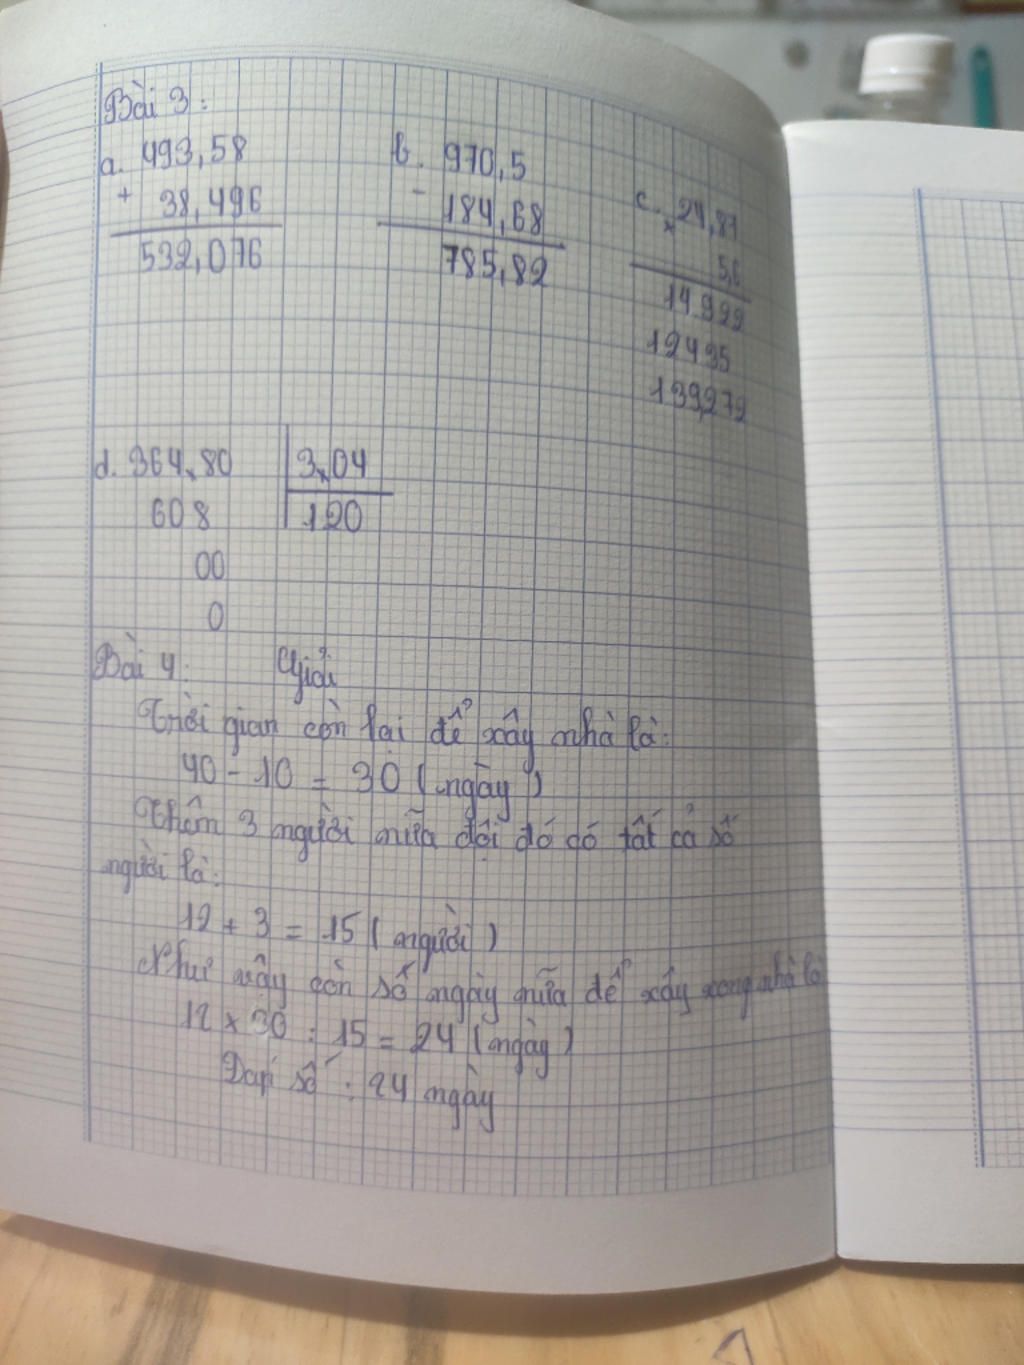 Bài 3:
a. 493,58
+ 38,496
532,076
b. 970,5
- 184,68
785,82
c. × 24,87
5,6
14922
12435
139,272
d. 364,80 3,04
608 120
00
0
Bài 4: Giải
Thời gian còn lại để xây nhà là:
40 - 10 = 30 (ngày)
Thêm 3 người nữa đội đó có tất cả số
người là:
12 + 3 = 15 (người)
Như vậy còn số ngày nữa để xây xong nhà là
12 x 30 : 15 = 24 (ngày)
Đáp số: 24 ngày